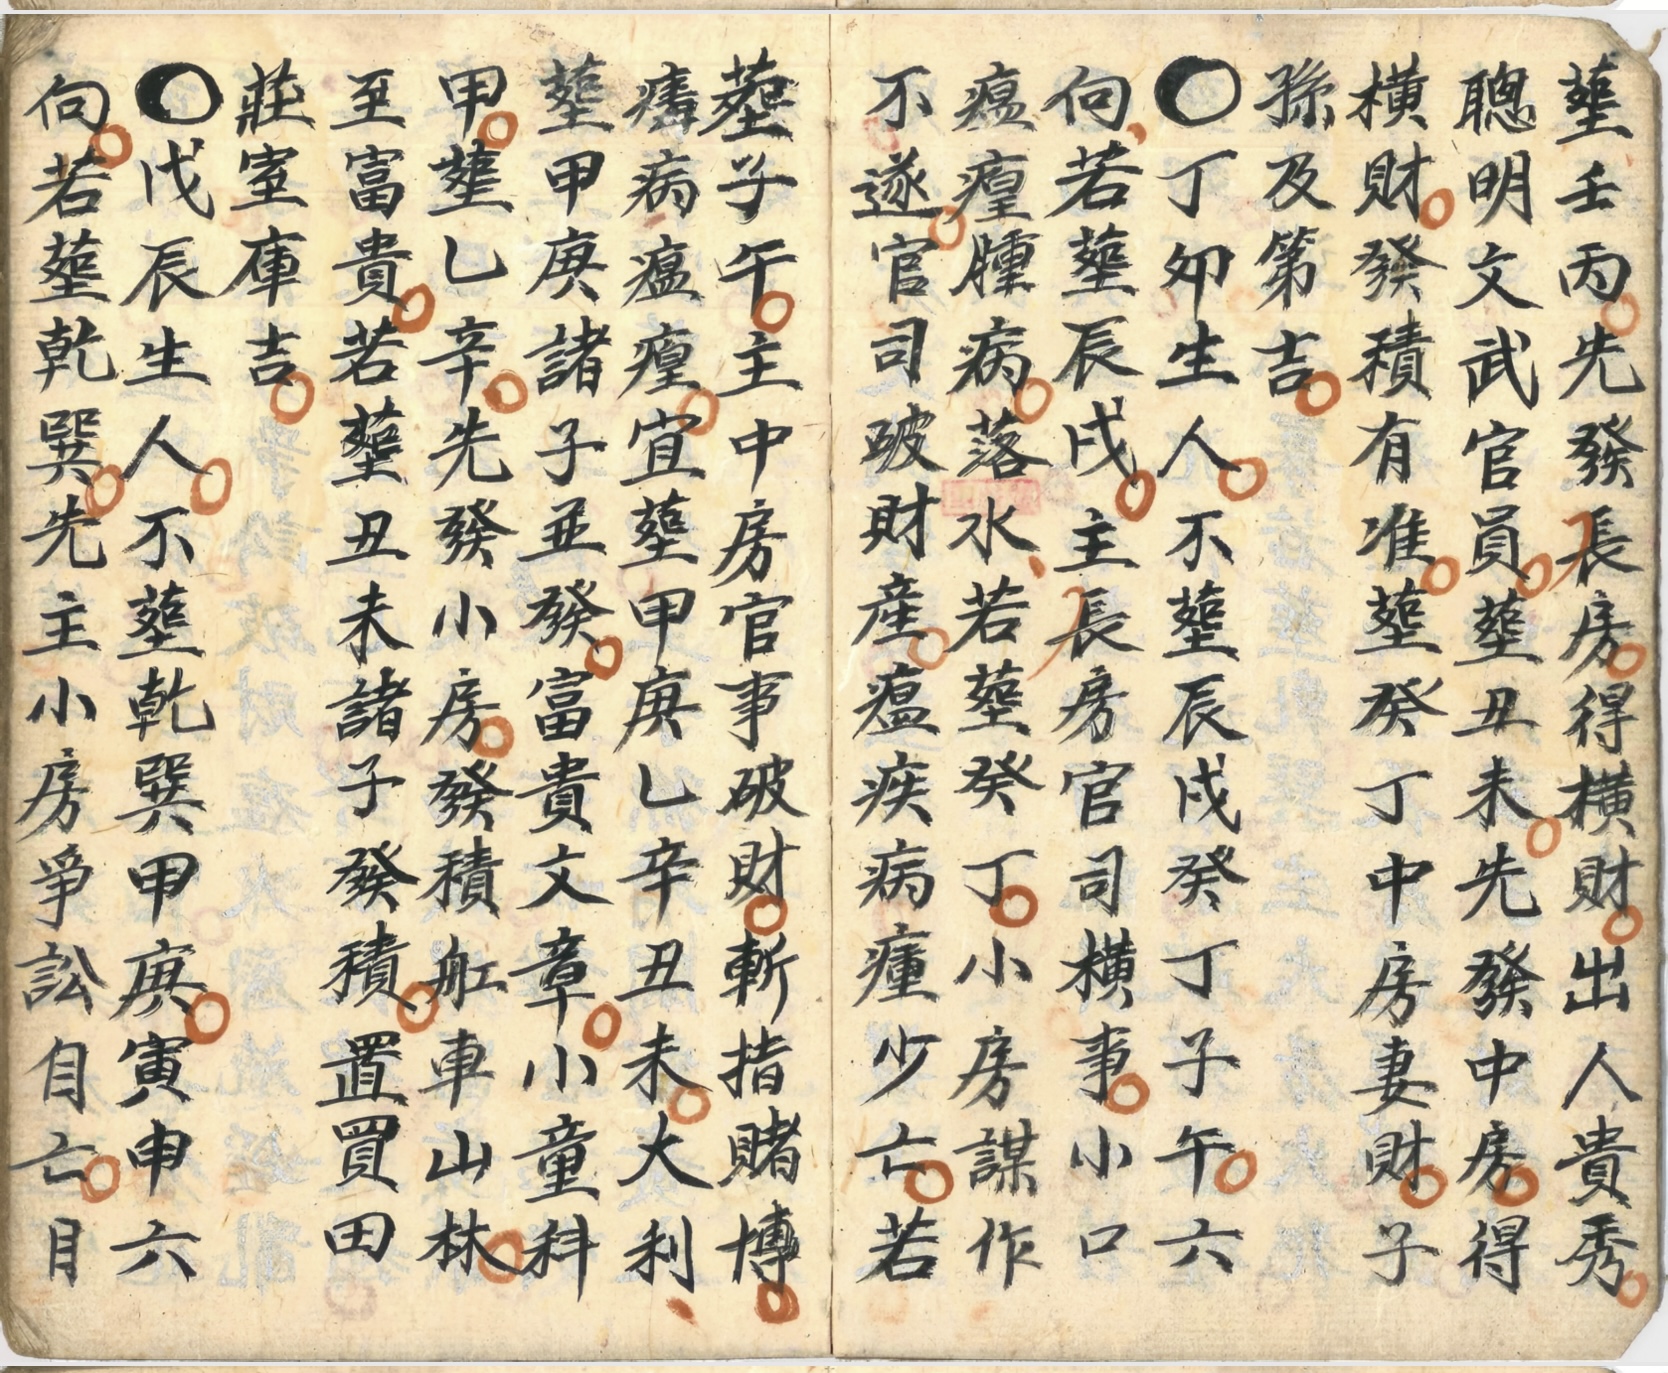 塟壬丙先發長房得橫財出人貴秀
聰明文武官員塟丑未先發中房得
橫財發積有准塟癸丁中房妻財子
孫及第吉
○丁夘生人不塟辰戌癸丁子午六
向若塟辰戌主長房官司橫事小口
瘟𤶜腫病落水若塟癸丁小房謀作
不遂官司破財産瘟疾病瘇少亡若
塟子午主中房官事破財斬指賭博
病瘟𤶜宜塟甲庚乙辛丑未大利
塟甲庚諸子並發富貴文章小童科
甲塟乙辛先發小房發積舡車山林
至富貴若塟丑未諸子發積置買田
莊室庫吉
○戊辰生人不塟乾巽甲庚寅申六
向若塟乾巽先主小房爭訟自亡目